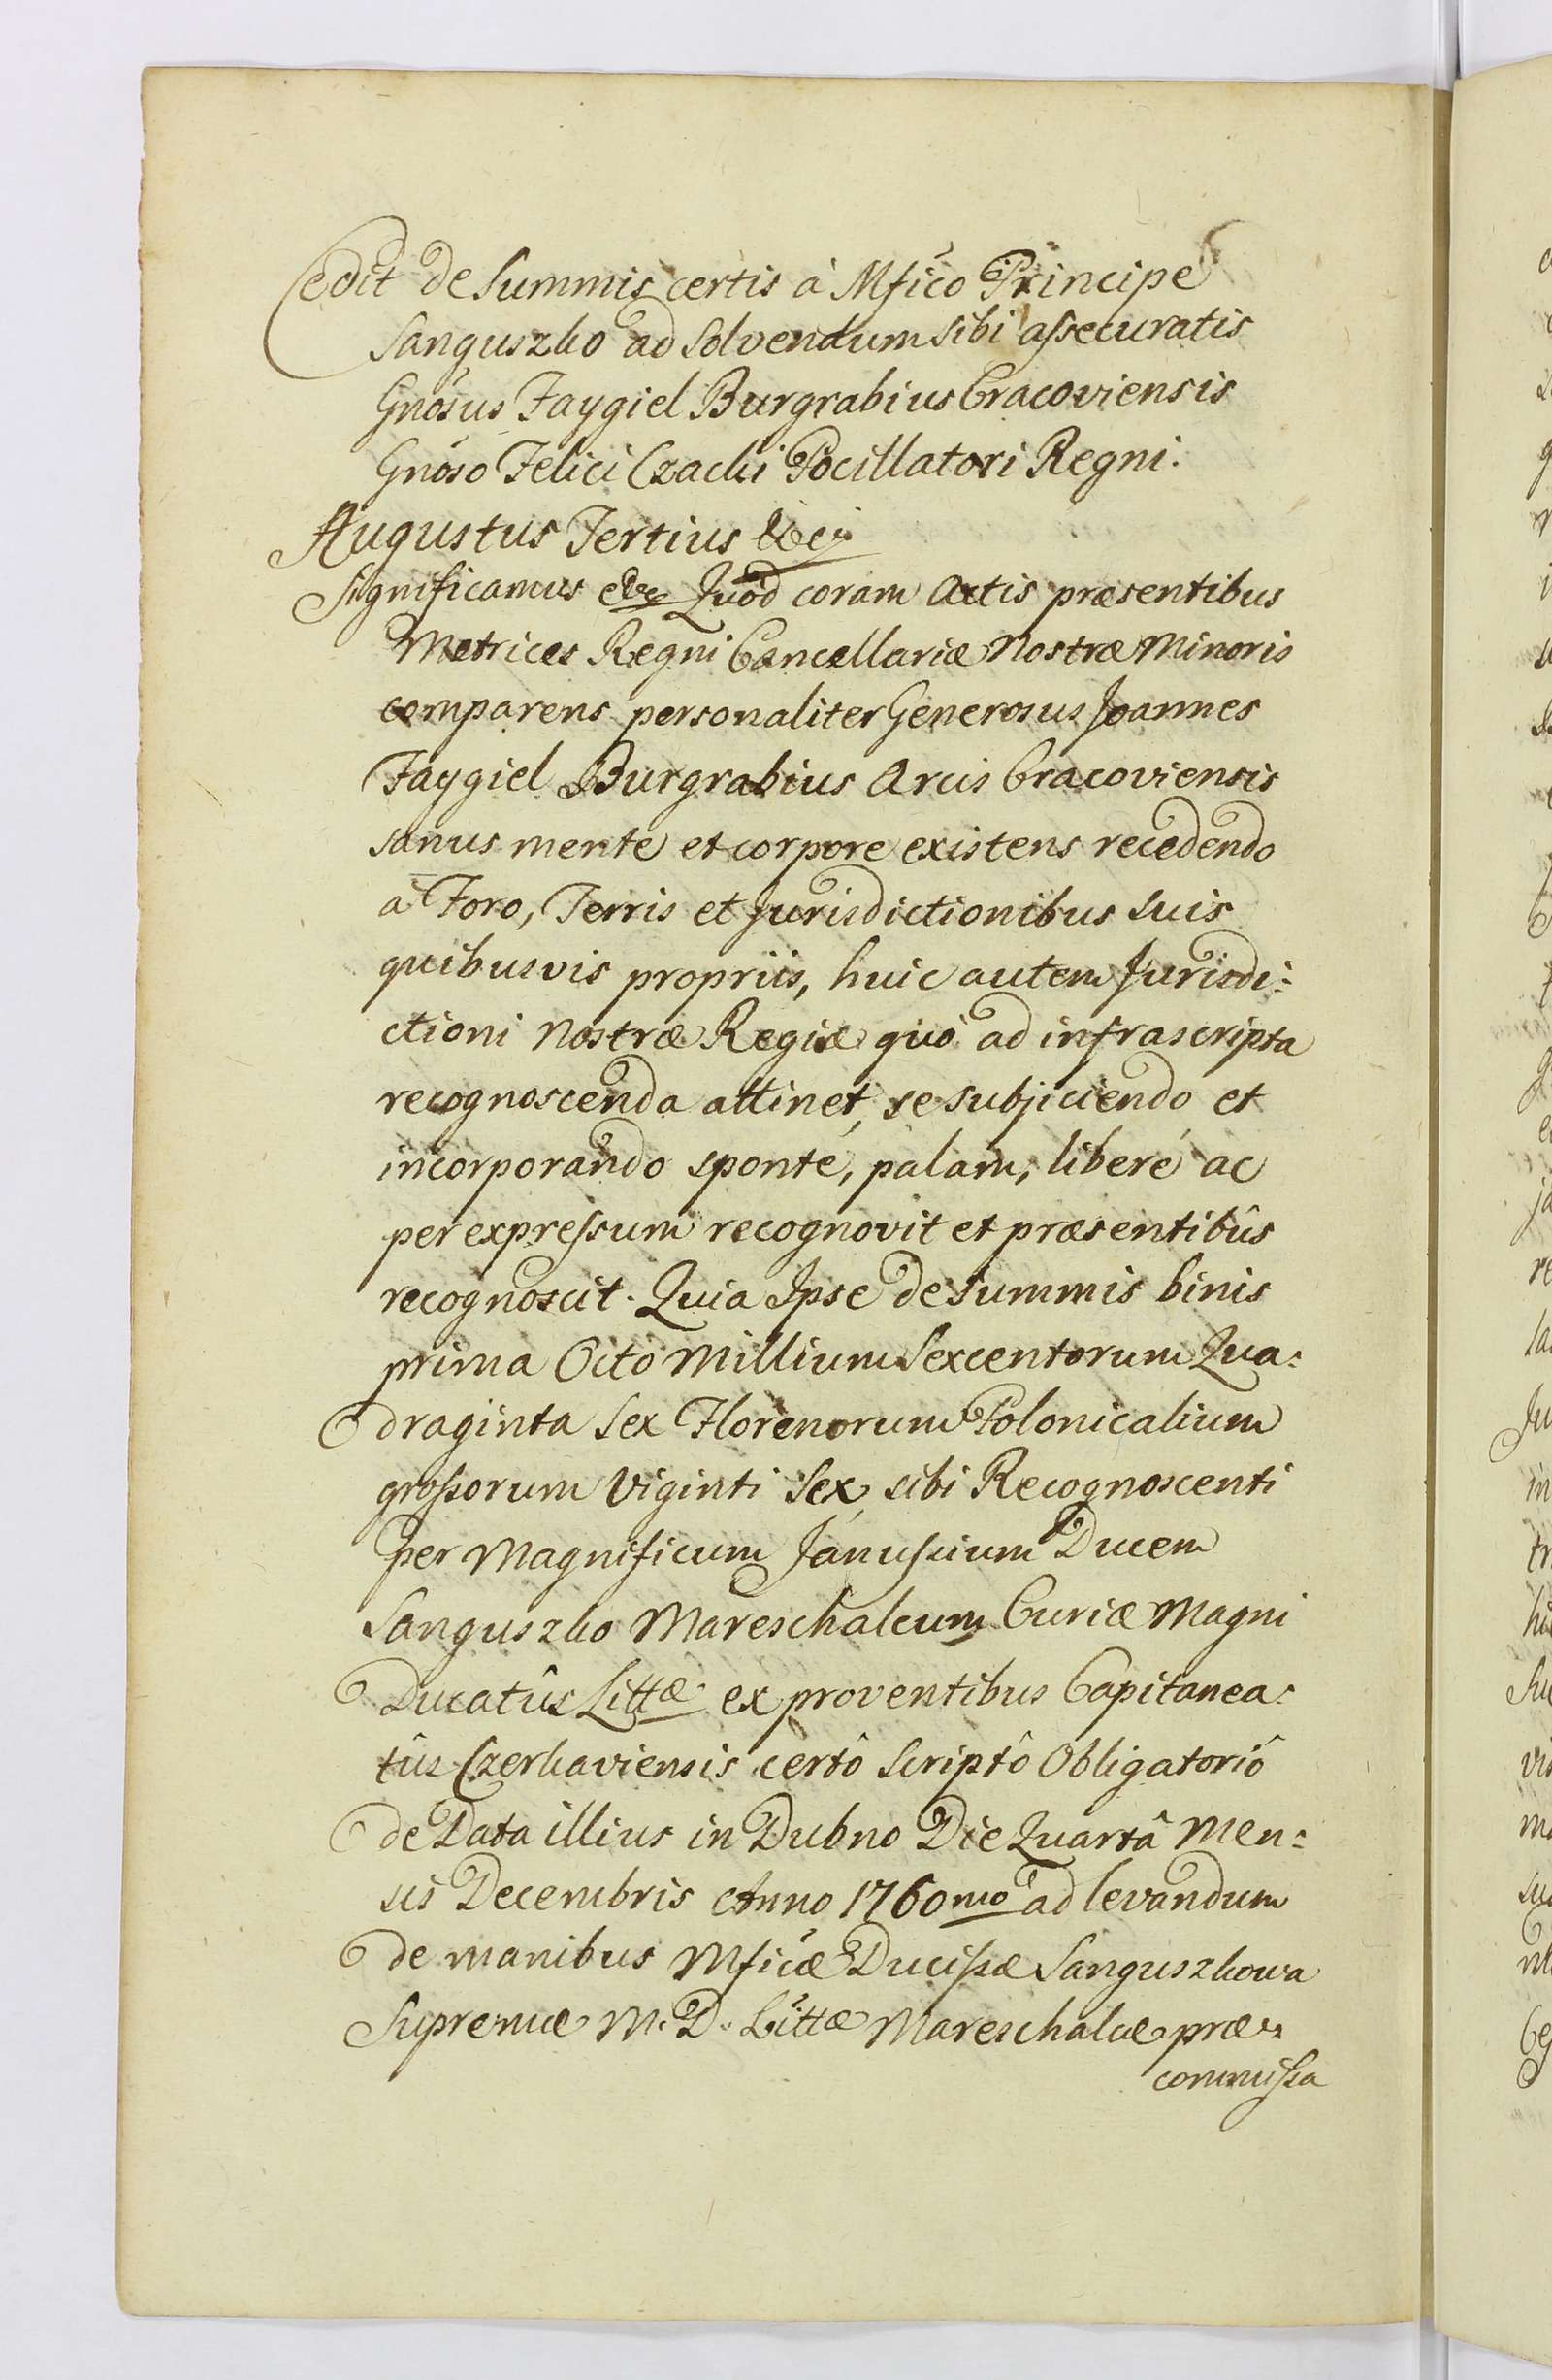 Cedit de Summis certis à Mfico Principe
Sanguszko ad Solvendum sibi assecuratis
Gnosus Faygiel Burgrabius Cracoviensis
Gnoso Felici Czacki Pocillatori Regni.
Augustus Tertius &c.
Significamus &c Quod coram Actis præsentibus
Metrices Regni Cancellariæ Nostræ Minoris
comparens personaliter Generosus Joannes
Faygiel Burgrabius Arcis Cracoviensis
sanus mente et corpore existens recedendo
à Foro, Terris et Jurisdictionibus suis
quibusvis propriis, huic autem Jurisdi:
ctioni Nostræ Regiæ quò ad infrascripta
recognoscenda attinet, se subjiciendo et
incorporando sponté, palam, liberé ac
per expressum recognovit et præsentibûs
recognoscit. Quia Ipse de summis binis
prima Octo Millium Sexcentorum Qua:
draginta Sex Florenorum Polonicalium
grossorum Viginti Sex, sibi Recognoscenti
per Magnificum Janussium Ducem
Sanguszko Mareschalcum Curiæ Magni
Ducatûs Littæ ex proventibus Capitanea:
tûs Czerkaviensis certô Scriptô Obligatoriô
de Data illius in Dubno Die Quartâ Men:
sis Decembris Anno 1760mo ad levandum
de manibus Mficæ Ducissæ Sanguszkowa
Supremæ M. D. Littæ Mareschalcæ præ:
commissa